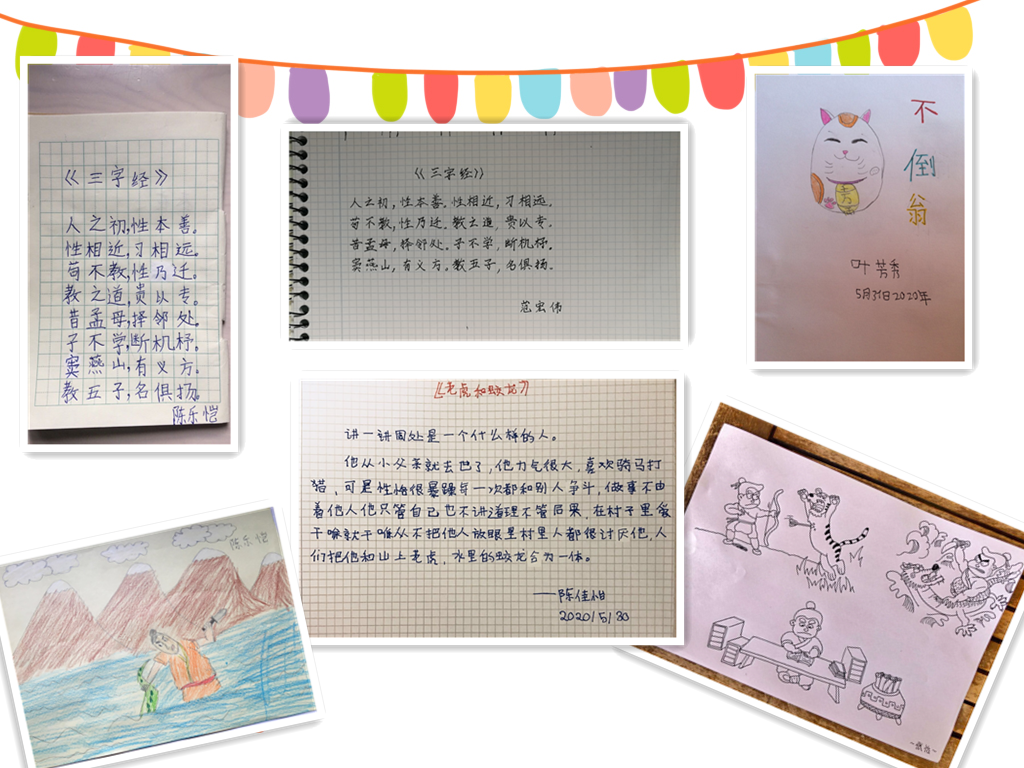 《三字经》
人之初,性本善。
性相近,习相远。
苟不教,性乃迁。
教之道,贵以专。
昔孟母,择邻处。
子不学,断机杼。
窦燕山,有义方。
教五子,名俱扬。
陈乐恺
《三字经》
人之初,性本善,性相近,习相远。
苟不教,性乃迁。教之道,贵以专。
昔孟母,择邻处。子不学,断机杼。
窦燕山,有义方。教五子,名俱扬。
范宏伟
不
倒
翁
秀
叶芳秀
5月31日2020年
《老虎和蛟龙》
讲一讲周处是一个什么样的人。
他从小父亲就去世了,他力气很大,喜欢骑马打
猎,可是性格很暴躁每一次都和别人争斗,做事不由
着他人他只管自己也不讲道理不管后果,在村子里爱
干嘛就干嘛从不把他人放眼里村里人都很讨厌他,人
们把他和山上老虎,水里的蛟龙合为一体。
——陈佳柑
2020/5/30
陈乐恺